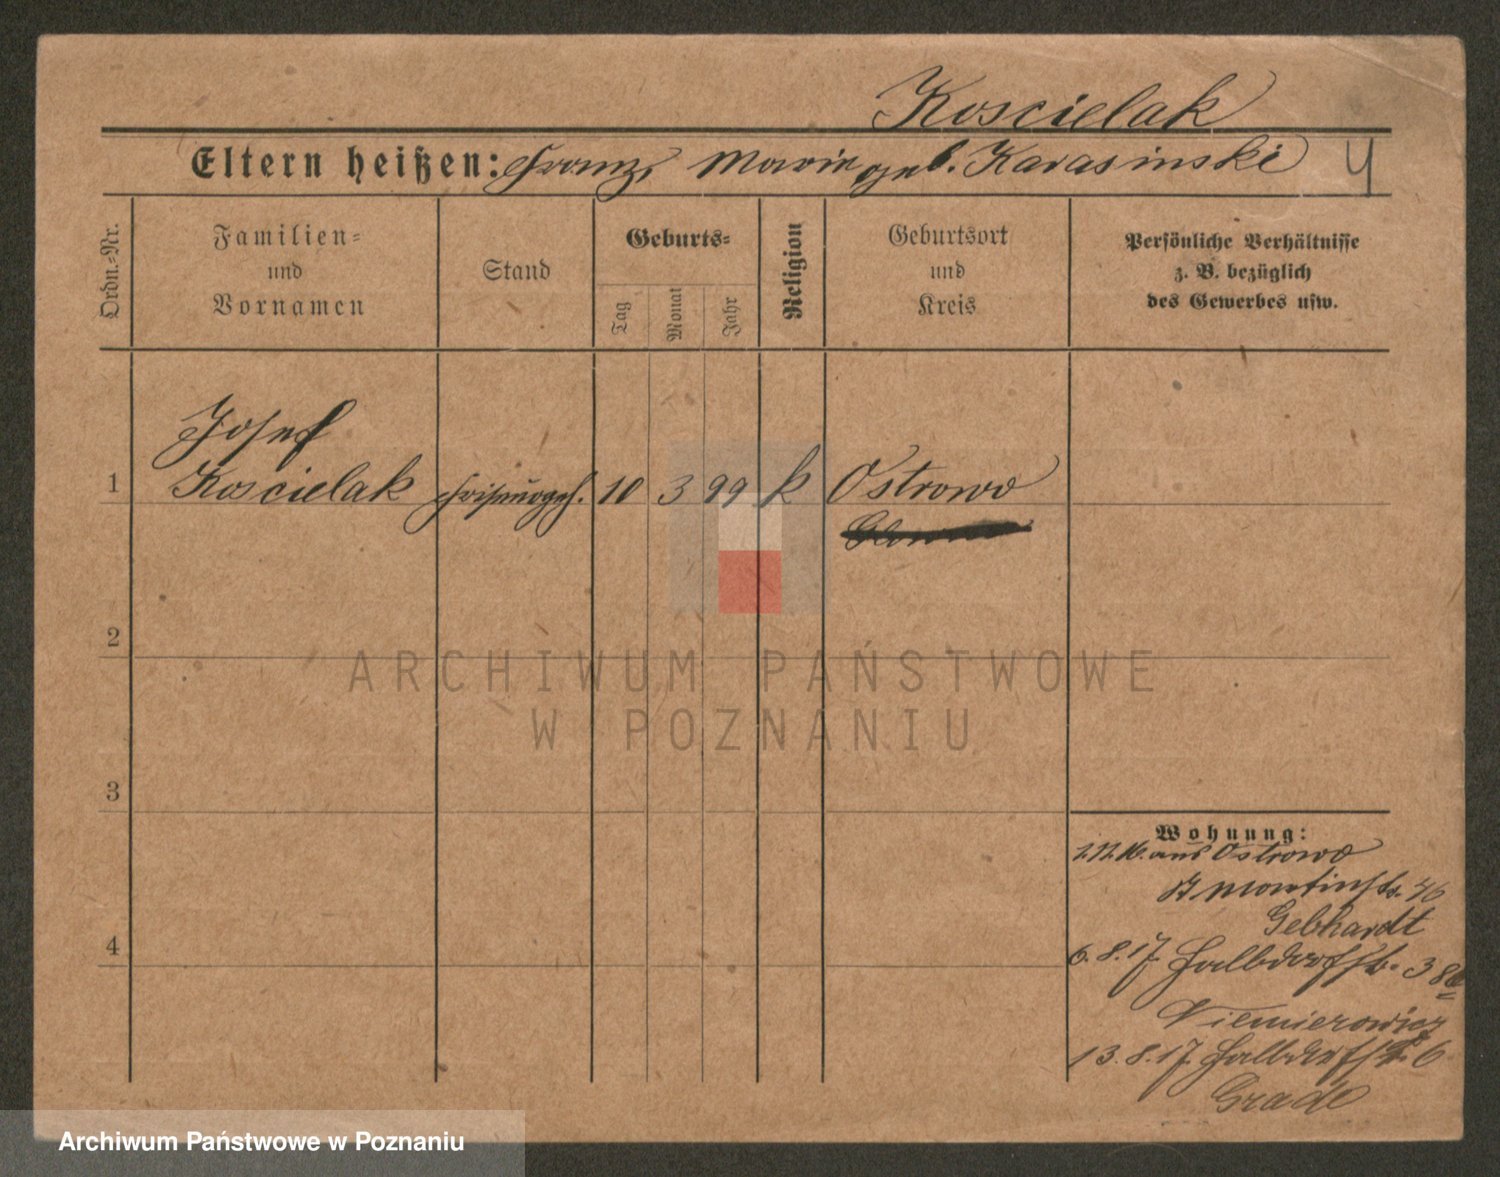 Koscielak
Eltern heißen: Franz, Marie geb. Karasinski
4
Ordn.-Nr.
Familien-
und
Vornamen
Stand
Geburts-
Tag
Monat
Jahr
Religion
Geburtsort
und
Kreis
Persönliche Verhältnisse
z. B. bezüglich
des Gewerbes usw.
Josef
1 Koscielak Friseurgeh. 10 3 99 k Ostrowo
2
3
4
ARCHIWUM PAŃSTWOWE
W POZNANIU
Wohnung:
aus Ostrowo
St Martinstr. 46
Gebhardt
6.8.17 Halbdorfstr. 38
Niemierowicz
13.8.17 Halbdorfstr. 6
Grade
Archiwum Państwowe w Poznaniu